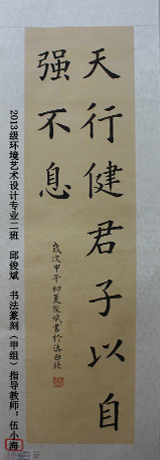 天行健君子以自
强不息
岁次甲午初夏俊斌书于滇西北
2013级环境艺术设计专业二班 邱俊斌 书法篆刻（甲组）指导教师：伍小海